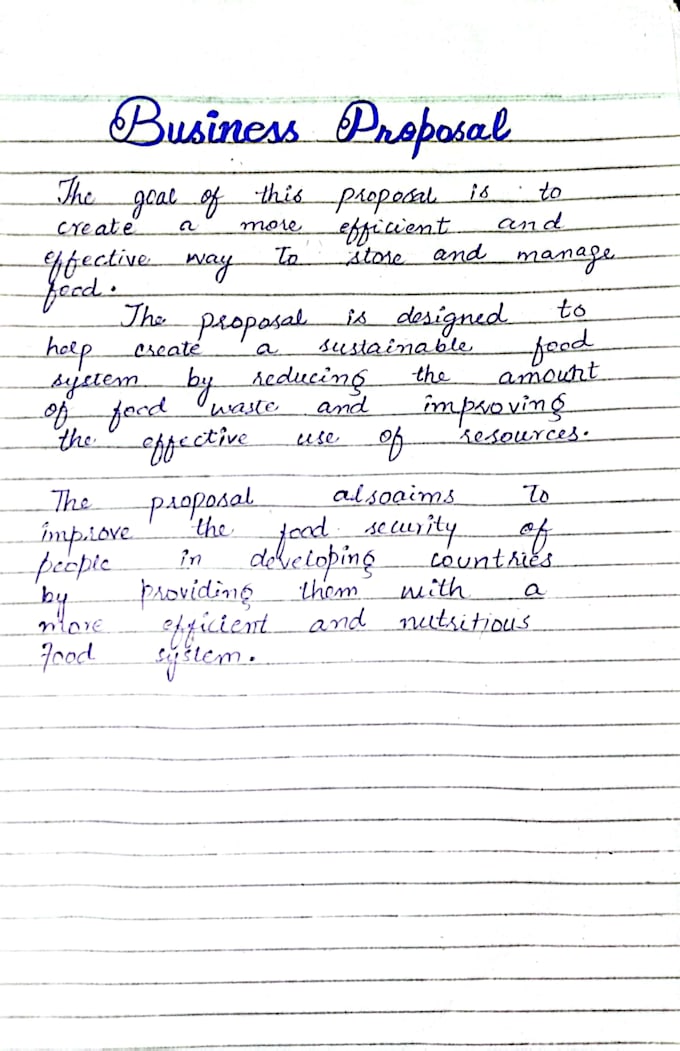 Business Proposal
The goal of this proposal is to
create a more efficient and
effective way To store and manage
food.
The proposal is designed to
help create a sustainable food
system by reducing the amount
of food waste and improving
the effective use of resources.
The proposal alsoaims To
improve the food security of
people in developing countries
by providing them with a
more efficient and nutritious
food system.